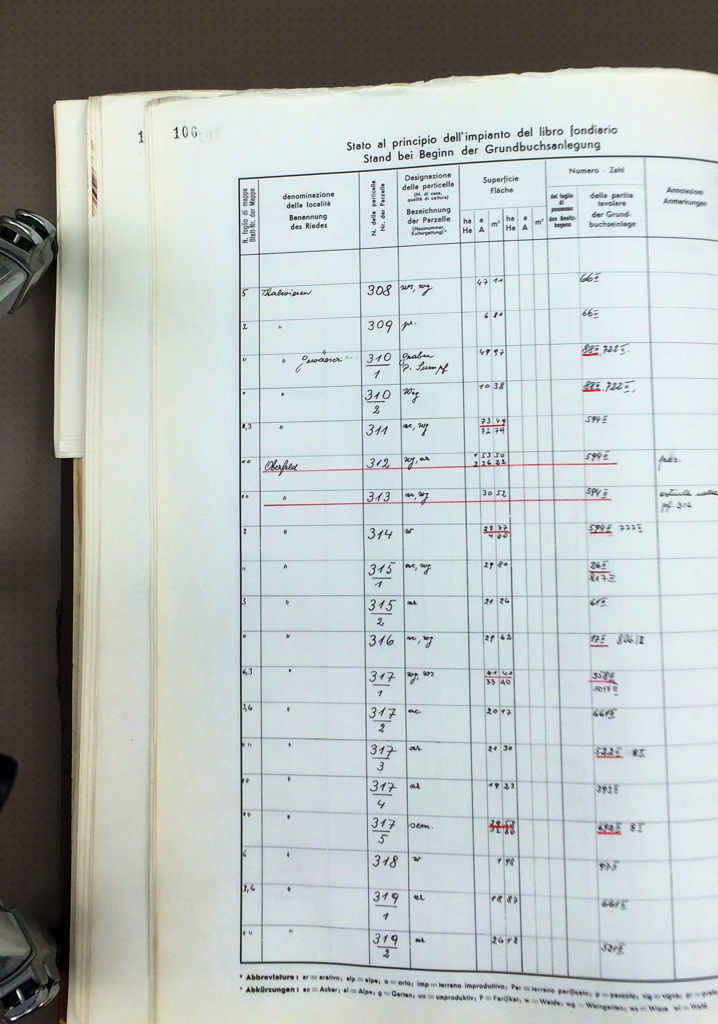 106
Stato al principio dell'impianto del libro fondiario
Stand bei Beginn der Grundbuchsanlegung
N. foglio di mappa
Blatt-Nr. der Mappe
denominazione della località
Benennung des Riedes
N. della particella
Nr. der Parzelle
Designazione della particella
(N. di casa, qualità di coltura)
Bezeichnung der Parzelle
(Hausnummer, Kulturgattung)*
Superficie
Fläche
ha a m² ha a m²
Ha A Ha A
Numero - Zahl
del foglio di possesso
des Besitzbogens
della partita tavolare
der Grundbuchseinlage
Annotazioni
Anmerkungen
5 Thalwiesen 308 ws, wg 47 11 66 II
2 " 309 6 80 66 II
" " Gewässer 310/1 Graben P. Sumpf 49 97 88 II, 722 II.
" " 310/2 Weg 10 38 88 II, 722 II.
2,3 " 311 ac, wg 72 79 594 II
" " Oberfeld 312 wg, ac 594 II
" " " 313 ac, wg 30 52 594 II
3 " 314 w 594 II 777 II
" " 315/1 ac, wg 29 80 26 II 817 II
3 " 315/2 ac 21 26 61 II
" " 316 ac, wg 29 62 17 II 806 II
6,3 " 317/1 wg, ws 41 41 33 40 358 II
3,6 " 317/2 ac 20 17 661 II
" " " 317/3 ac 21 30 522 II 8 I
" " " 317/4 ac 19 23 393 II
" " " 317/5 sem. 692 II 8 I
6 " 318 w 1 98 973 II
3,6 " 319/1 ac 18 87 661 II
" " " 319/2 ac 26 18
* Abbreviature: ar = arativo; alp = alpe; o = orto; imp = terreno improduttivo; Par = terreno parificato; p = pascolo; vig = vigna; pr = prato
* Abkürzungen: ac = Acker; al = Alpe; g = Garten; un = unproduktiv; P = Parifikat; w = Weide; wg = Weingarten; ws = Wiese; wl = Wald